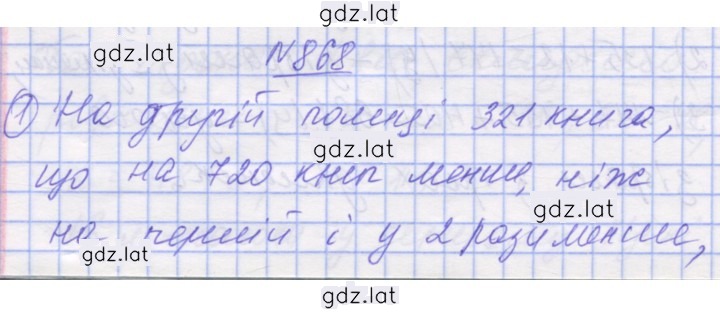 gdz.lat
№868
gdz.lat
1) На другій полиці 321 книга,
gdz.lat
що на 720 книг менше, ніж
gdz.lat
на першій і у 2 рази менше,
gdz.lat
gdz.lat